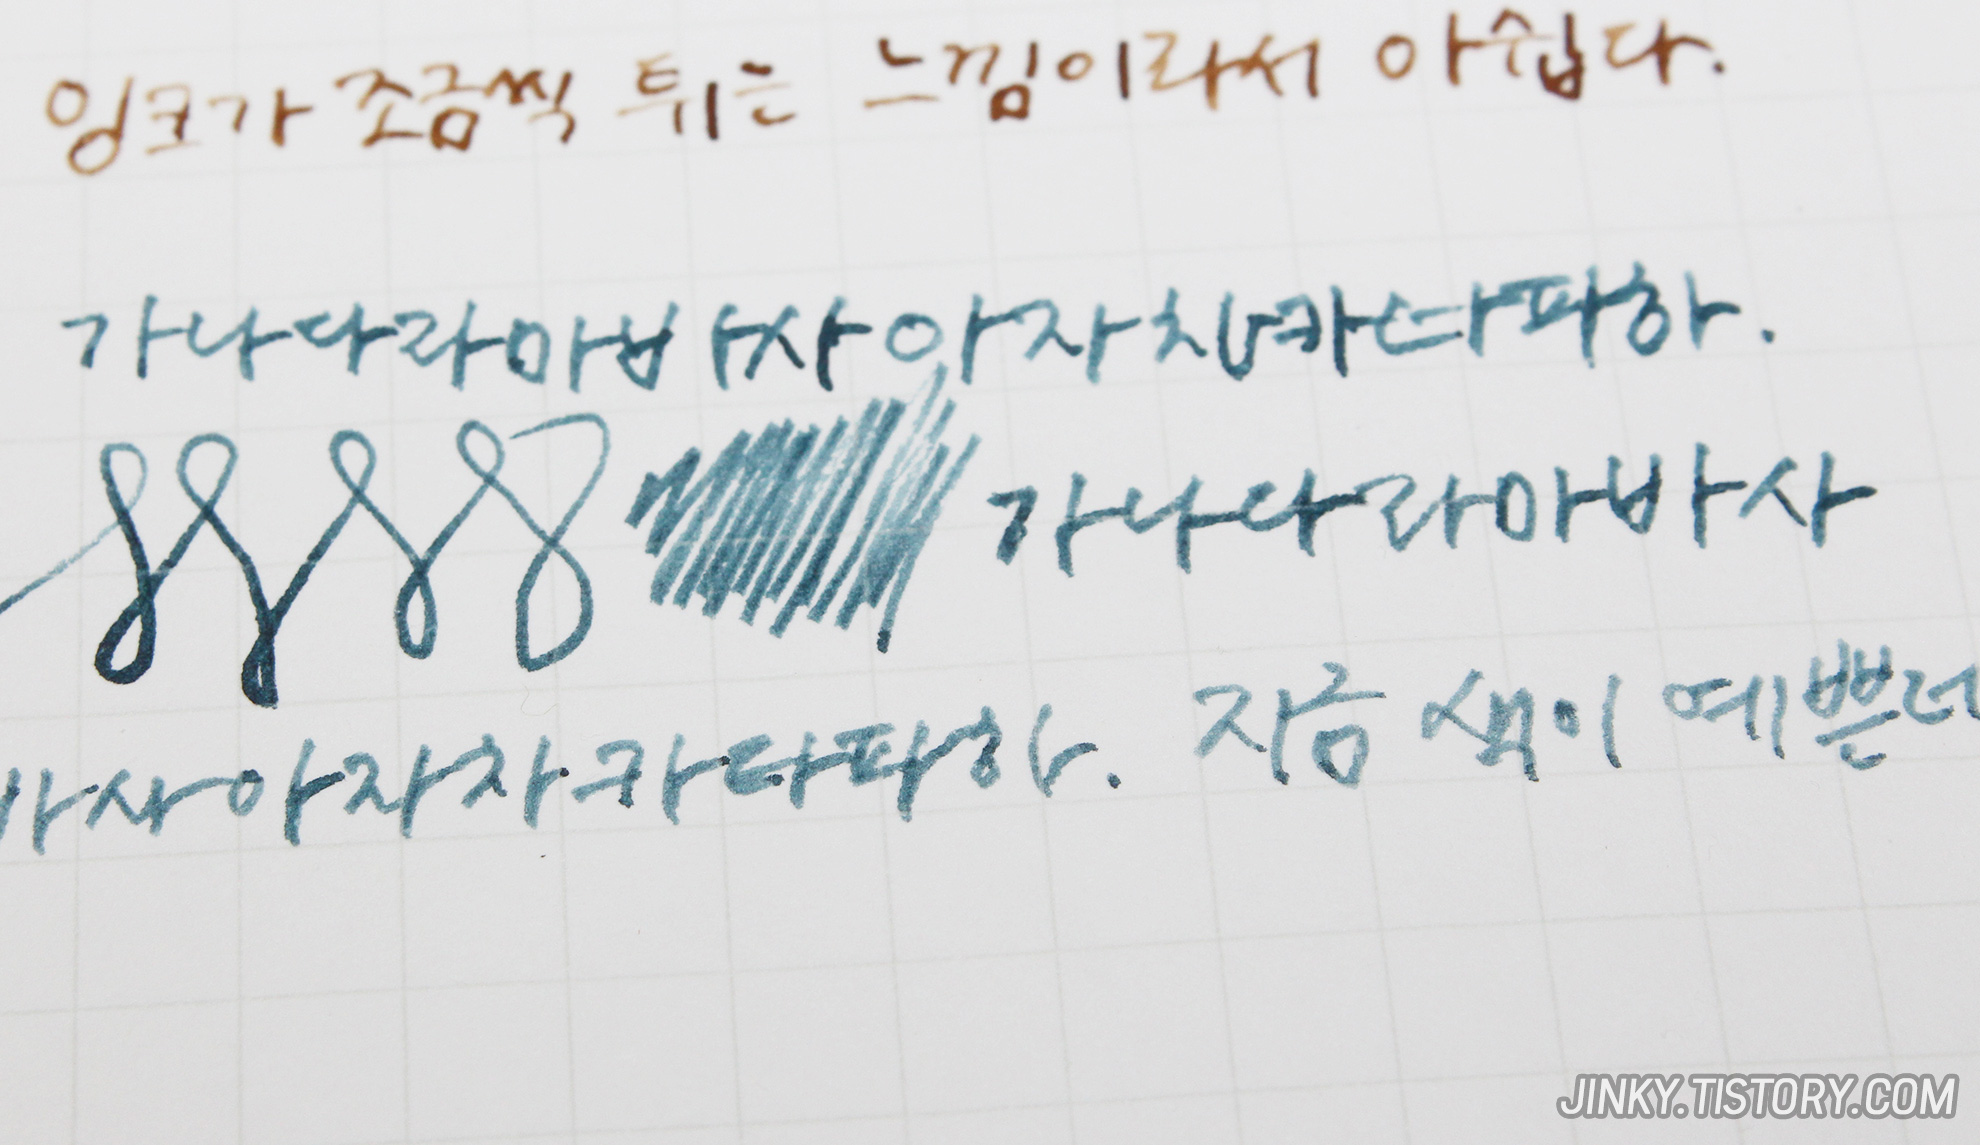 잉크가 조금씩 튀는 느낌이라서 아쉽다.
가나다라마바사아자차카타파하.
가나다라마바사
바사아자차카타파하. 지금 색이 예쁜데
JINKY.TISTORY.COM